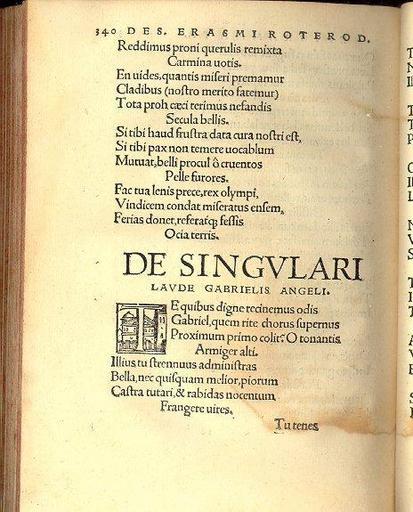 340 DES. ERASMI ROTEROD.
Reddimus proni querulis remixta
Carmina uotis.
En uides, quantis miseri premamur
Cladibus (nostro merito fatemur)
Tota proh cæci terimus nefandis
Secula bellis.
Si tibi haud frustra data cura nostri est,
Si tibi pax non temere uocablum
Mutuat, belli procul ô cruentos
Pelle furores.
Fac tua lenis prece, rex olympi,
Vindicem condat miseratus ensem,
Ferias donet, referatq; fessis
Ocia terris.
DE SINGVLARI
LAVDE GABRIELIS ANGELI.
TE quibus digne recinemus odis
Gabriel, quem rite chorus supernus
Proximum primo colit? O tonantis
Armiger alti.
Illius tu strennuus administras
Bella, nec quisquam melior, piorum
Castra tutari, & rabidas nocentum
Frangere uires.
Tu tenes